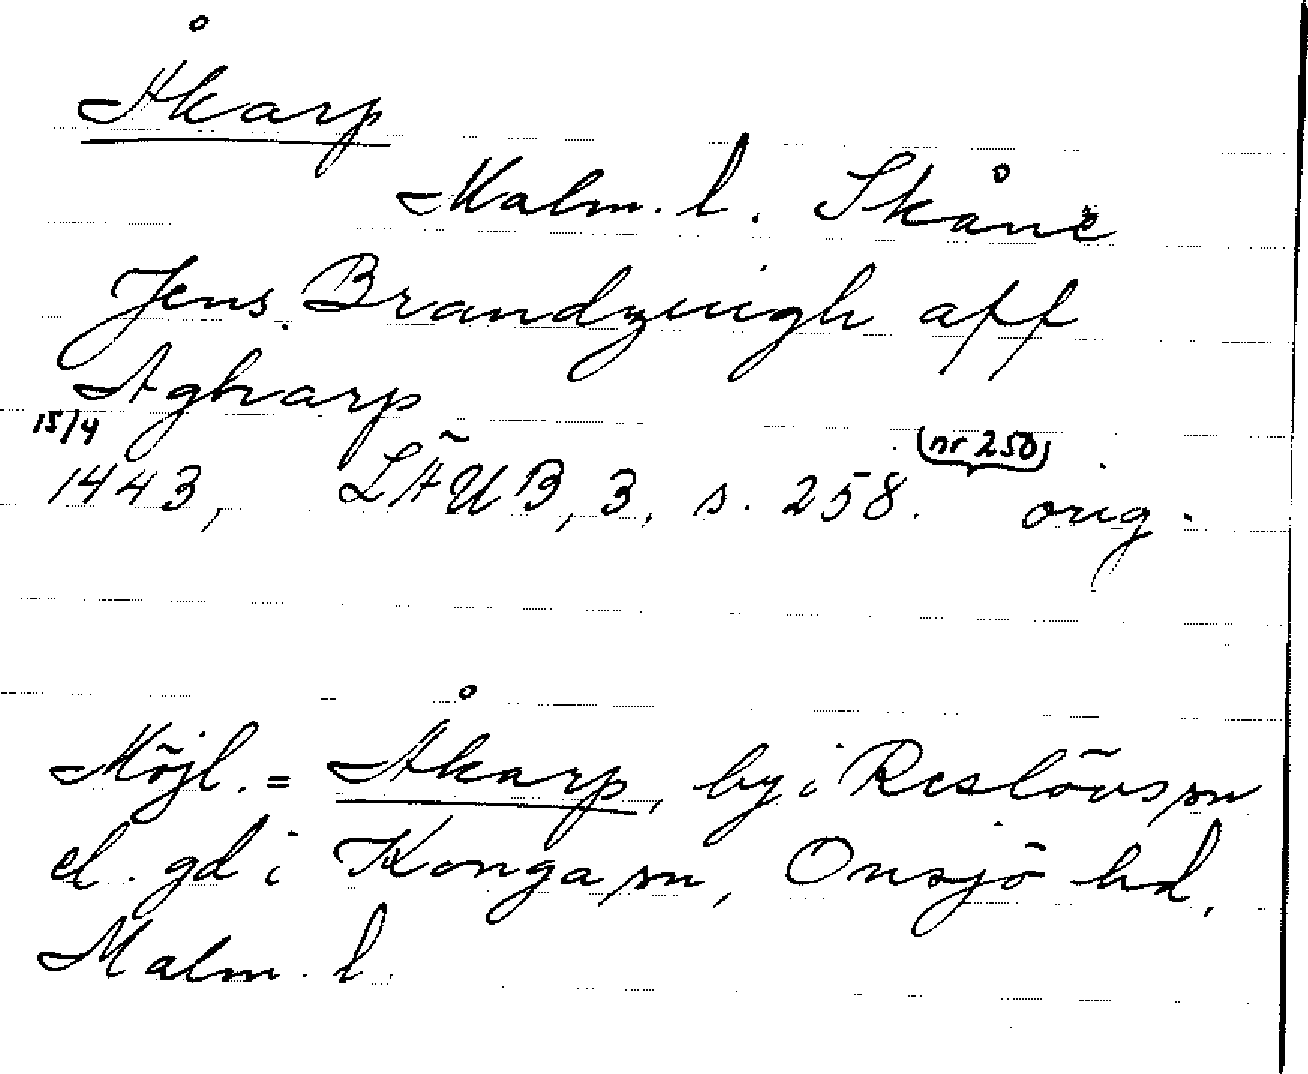 Åkarp
Malm. l. Skåne
Jens Brandzuigh aff
Agharp
15/4 (nr 250)
1443, LÄUB, 3, s. 258. orig.
Möjl. = Åkarp, by i Reslövs sn
el. gd i Konga sn, Onsjö hd,
Malm. l.